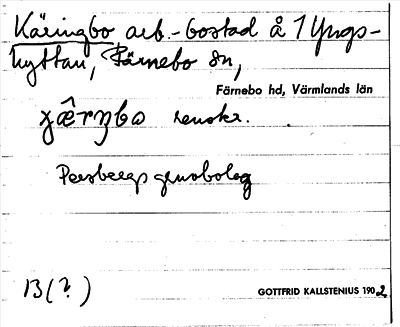 Käringbo arb.-bostad å 1 Yngs-
hyttan, Färnebo sn,
Färnebo hd, Värmlands län
renskr.
Persbergs gruvbolag
13(?)
GOTTFRID KALLSTENIUS 1902